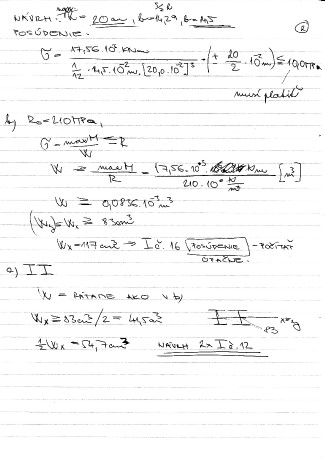 ②
NÁVRH: h = 20 cm, b = 14,5
POSÚDENIE:
σ = 17,56.10³ Nm / (1/12 . 14,5.10⁻² . [20,0.10⁻²]³) . (± 20/2 . 10⁻² m) ≤ 10,0 MPa
musí platiť
b) R₀ = 210 MPa,
σ = maxM / W ≤ R
W ≥ maxM / R = 17,56.10³ / 210.10⁶ [m³]
W ≥ 0,0836.10⁻³ m³
(Wy) = Wx ≥ 83 cm³
Wx = 117 cm³ → I č. 16 POSÚDENIE - POČÍTAŤ
OPAČNE.
c) I I
W = RÁTAME AKO V b)
Wx ≥ 83 cm³/2 = 41,5 cm³
83
½Wx = 54,7 cm³ NÁVRH 2x I č. 12